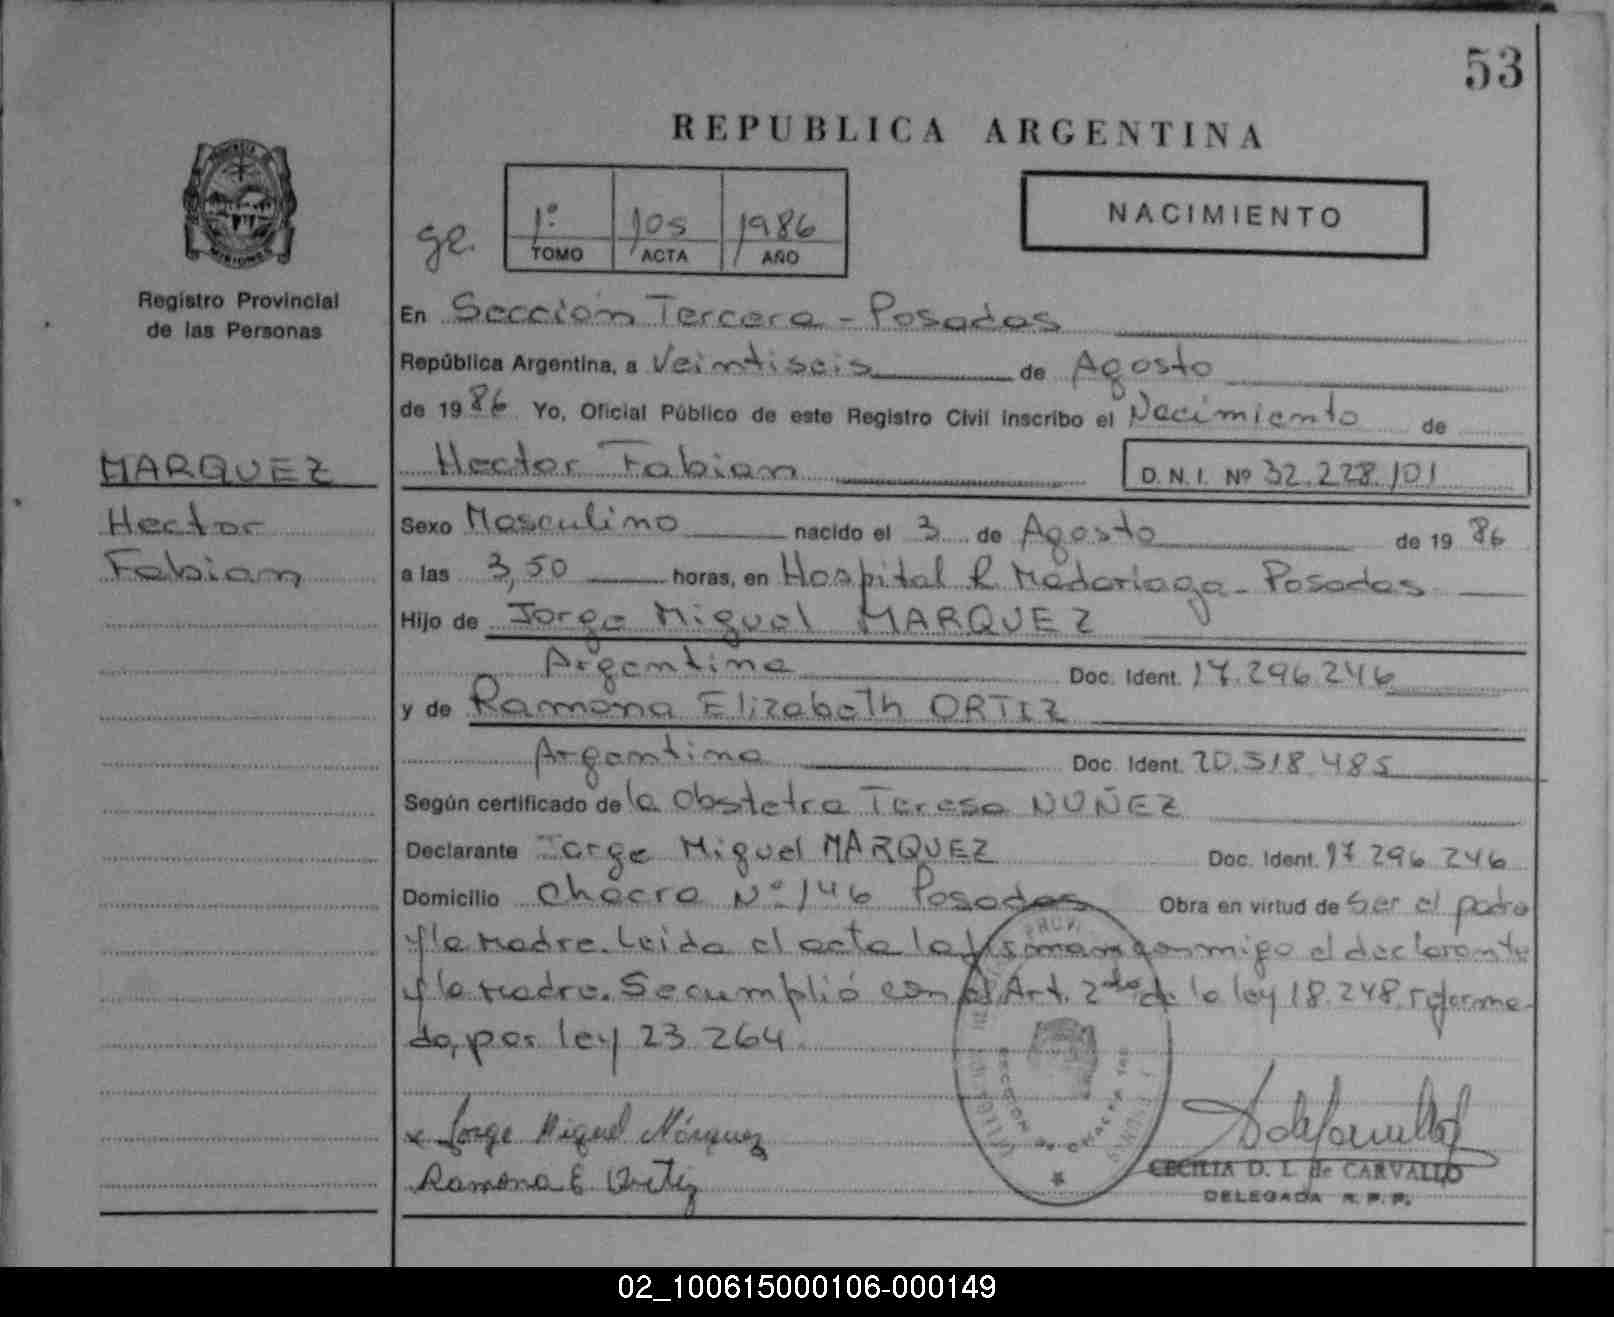 53
REPUBLICA ARGENTINA
ge.
1º 105 1986
TOMO ACTA AÑO
NACIMIENTO
Registro Provincial
de las Personas
MARQUEZ
Hector
Fabian
En Sección Tercera - Posadas
República Argentina, a Veintiseis de Agosto
de 1986 Yo, Oficial Público de este Registro Civil inscribo el Nacimiento de
Hector Fabian D.N.I. Nº 32.228.101
Sexo Masculino nacido el 3 de Agosto de 1986
a las 3,50 horas, en Hospital R Madariaga - Posadas
Hijo de Jorge Miguel MARQUEZ
Argentina Doc. Ident. 17.296.246
y de Ramona Elizabeth ORTIZ
Argentina Doc. Ident. 20.518.485
Según certificado de la Obstetra Teresa NUÑEZ
Declarante Jorge Miguel MARQUEZ Doc. Ident. 17 296 246
Domicilio Chacra Nº 146 Posadas Obra en virtud de Ser el padre
y la Madre. Leida el acta la firman conmigo el declarante
y la Madre. Se cumplió con el Art. 2do de la ley 18.248, reforma-
da, por ley 23.264
x Jorge Miguel Márquez
Ramona E Ortiz
CECILIA D. L. de CARVALLO
DELEGADA R.P.P.
02_100615000106-000149